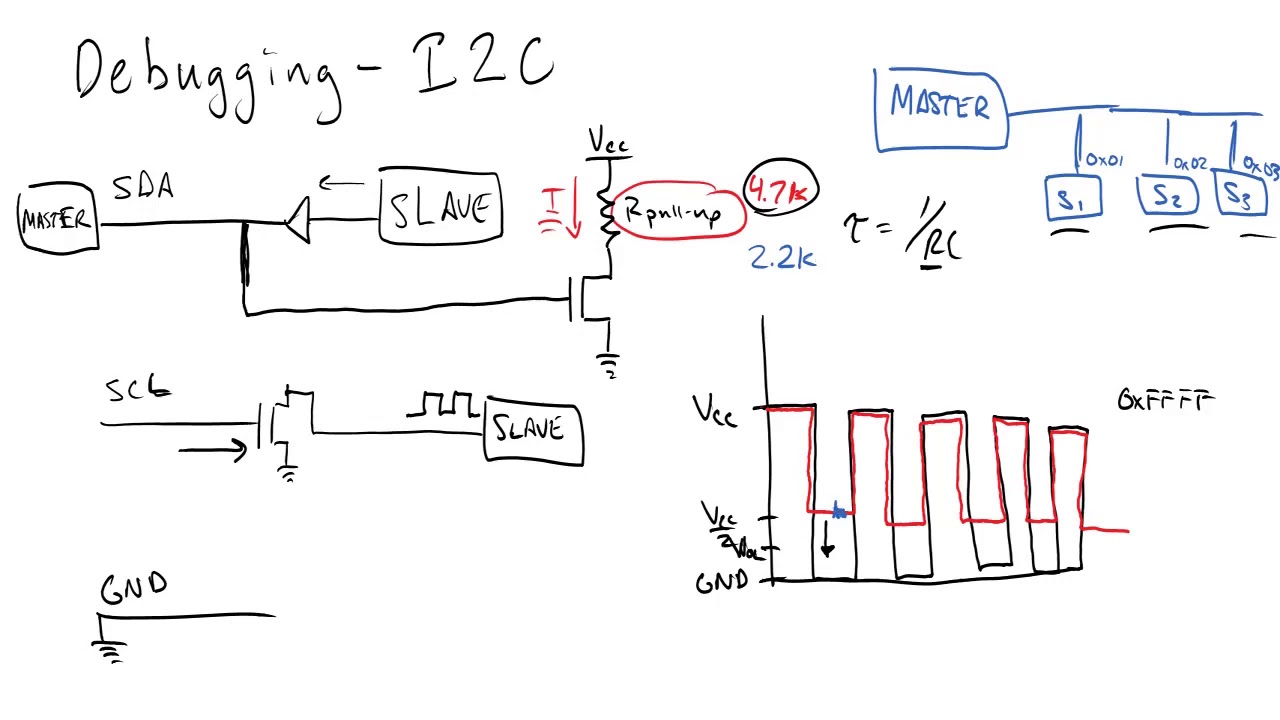 Debugging - I2C
MASTER
0x01
0x02
0x03
S1
S2
S3
Vcc
SDA
MASTER
SLAVE
I
Rpull-up
4.7k
2.2k
τ = 1/RC
SCL
SLAVE
GND
Vcc
Vcc/2
VOL
GND
0xFFFF